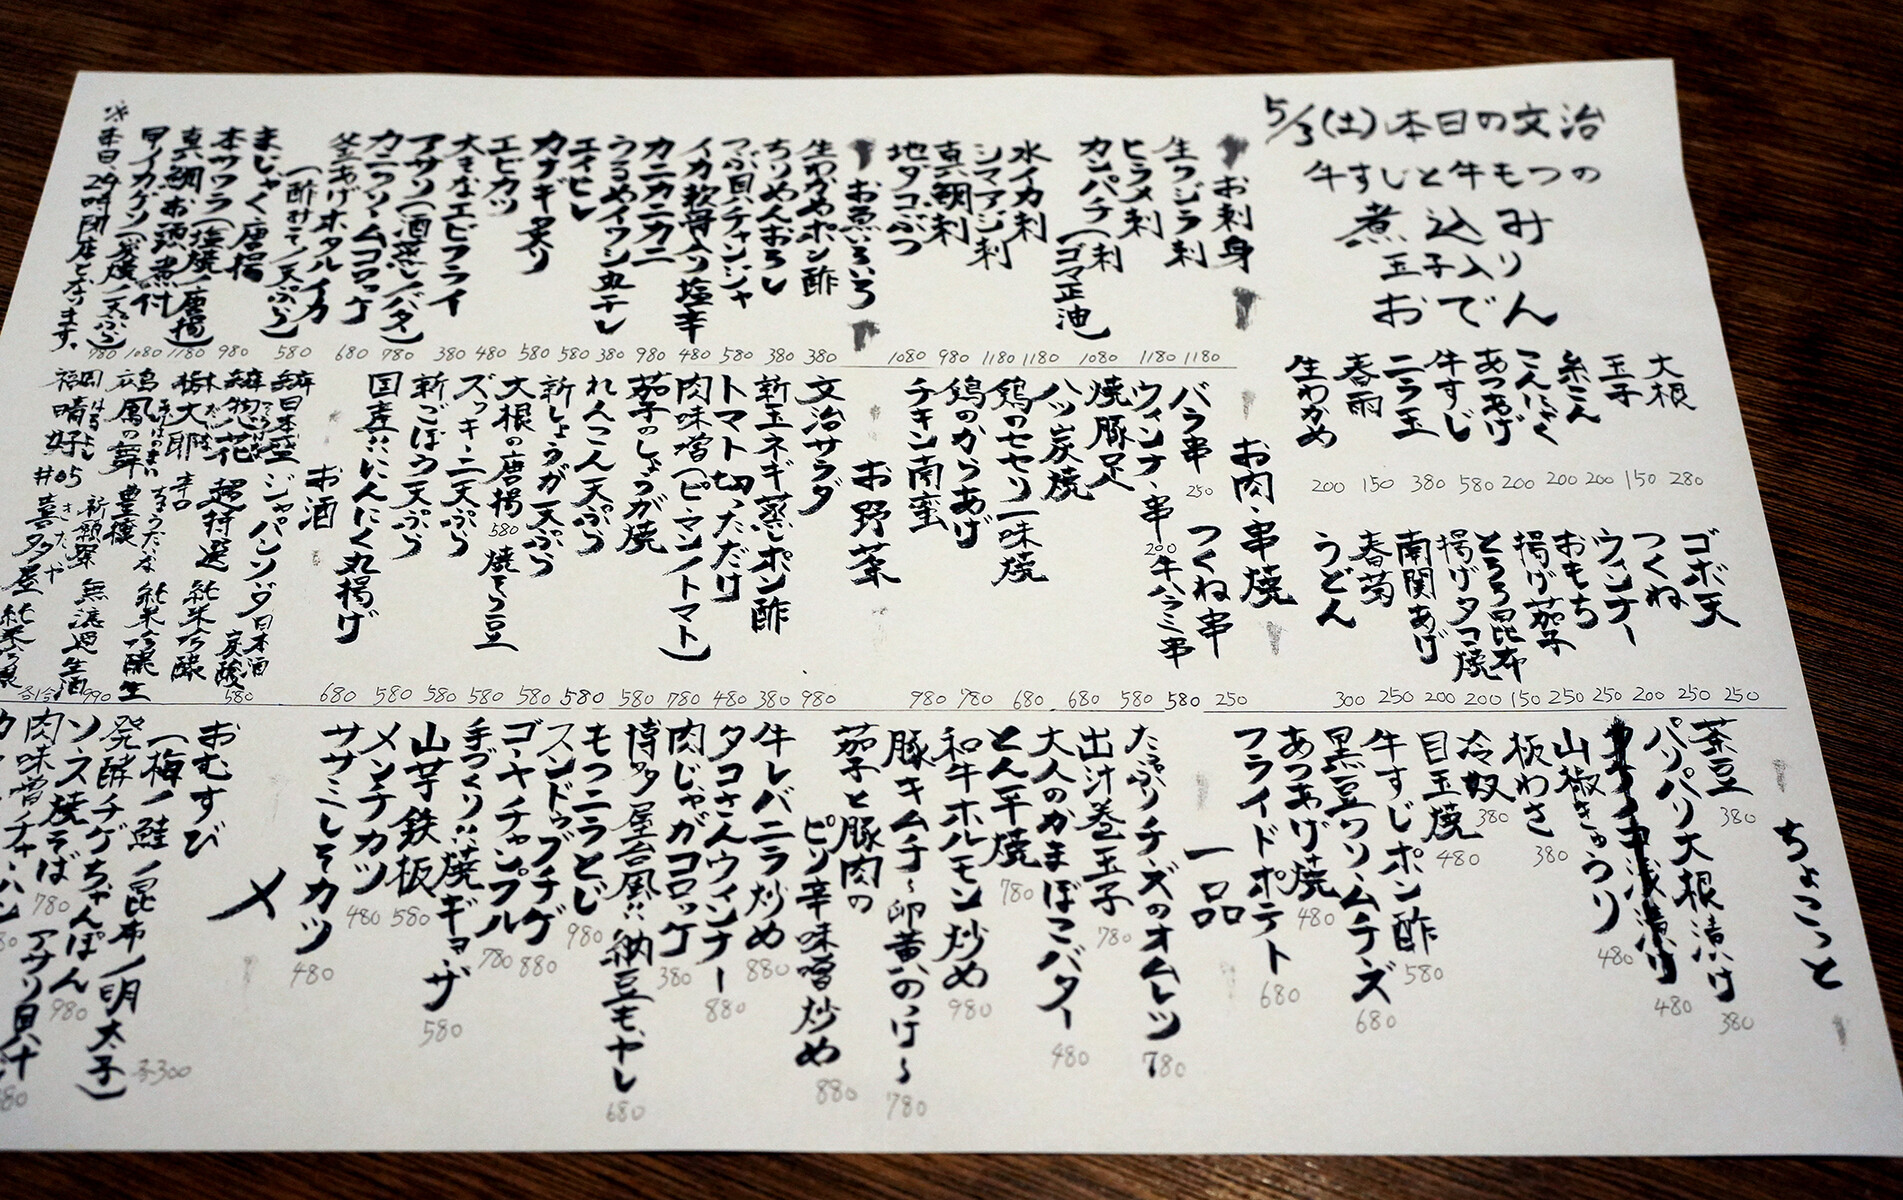 5/3(土)本日の文治
牛すじと牛もつの
煮込み
玉子入り
おでん
大根 280
玉子 150
糸こん 200
こんにゃく 200
あつあげ 200
牛すじ 580
ニラ玉 380
春雨 150
生わかめ 200
ゴボ天 250
つくね 250
ウィンナー 200
おもち 250
揚げ茄子 250
とろろ昆布 150
揚げタコ焼 200
南関あげ 200
春菊 250
うどん 300
お刺身
生クジラ刺 1180
ヒラメ刺 1180
カンパチ刺(ゴマ正油) 1080
水イカ刺 1180
シマアジ刺 1180
真鯛刺 980
地ダコぶつ 1080
お魚いろいろ
生わかめポン酢 380
ちりめんおろし 380
つぶ貝チャンジャ 580
イカ軟骨入り塩辛 480
カニカニカニ 980
うるめイワシ丸干し 380
エイヒレ 580
カナギ炙り 580
エビカツ 480
大きなエビフライ 380
アサリ(酒蒸し/バタ) 780
カニクリームコロッケ 680
釜あげホタルイカ
(酢みそ/天ぷら) 580
まじゃく唐揚 980
本サワラ(塩焼/唐揚) 1180
真鯛お頭煮付 1080
甲イカゲソ(炭焼/天ぷら) 780
※本日、24時閉店となります。
お肉・串焼
バラ串 250 つくね串 250
ウィンナー串 200 牛ハラミ串 580
焼豚足 580
ハツ炭焼 680
鶏のセセリ一味焼 680
鶏のからあげ 780
チキン南蛮 980
お野菜
文治サラダ 980
新玉ネギ蒸しポン酢 380
トマト切っただけ 480
肉味噌(ピーマン/トマト) 780
茄子のしょうが焼 580
れんこん天ぷら 580
新しょうが天ぷら 580
大根の唐揚 580 焼そら豆 580
ズッキーニ天ぷら 580
新ごぼう天ぷら 580
国産!!にんにく丸揚げ 680
お酒
日本盛 ジャパンソーダ 日本酒炭酸 580
惣花 超特選 純米吟醸
大郎 辛口
鳳凰の舞 豊穣 純米吟醸生
田 はるよし
福晴好 #05 新願祭 無濾過生酒 990
喜多屋 きたや 純米吟醸
各1合
ちょこっと
茶豆 380
パリパリ大根漬け 380
浅漬け 480
山椒きゅうり 480
板わさ 380
冷奴 380
目玉焼 480
牛すじポン酢 580
黒豆クリームチーズ 680
あつあげ焼 480
フライドポテト 680
一品
たっぷりチーズのオムレツ 780
出汁巻玉子 780
大人のかまぼこバター 480
とん平焼 780
和牛ホルモン炒め 980
豚キムチ〜卵黄のっけ〜 780
茄子と豚肉の
ピリ辛味噌炒め 880
牛レバニラ炒め 880
タコさんウィンナー 880
肉じゃがコロッケ 380
博多屋台風!!納豆モヤし 680
もつニラとじ 980
スンドゥブチゲ 880
ゴーヤチャンプル 780
手づくり!!焼ギョーザ 580
山芋鉄板 580
メンチカツ 480
ササミしそカツ 480
〆
おむすび
(梅/鮭/昆布/明太子) 各300
発酵チゲちゃんぽん 980
ソース焼そば 780 アサリ貝汁
肉味噌チャーハン